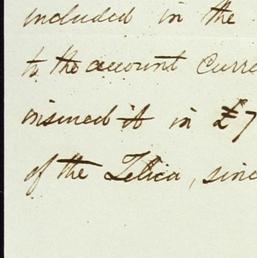 included in the
to the account Curre
insured it in £7
of the Zelica, sinc